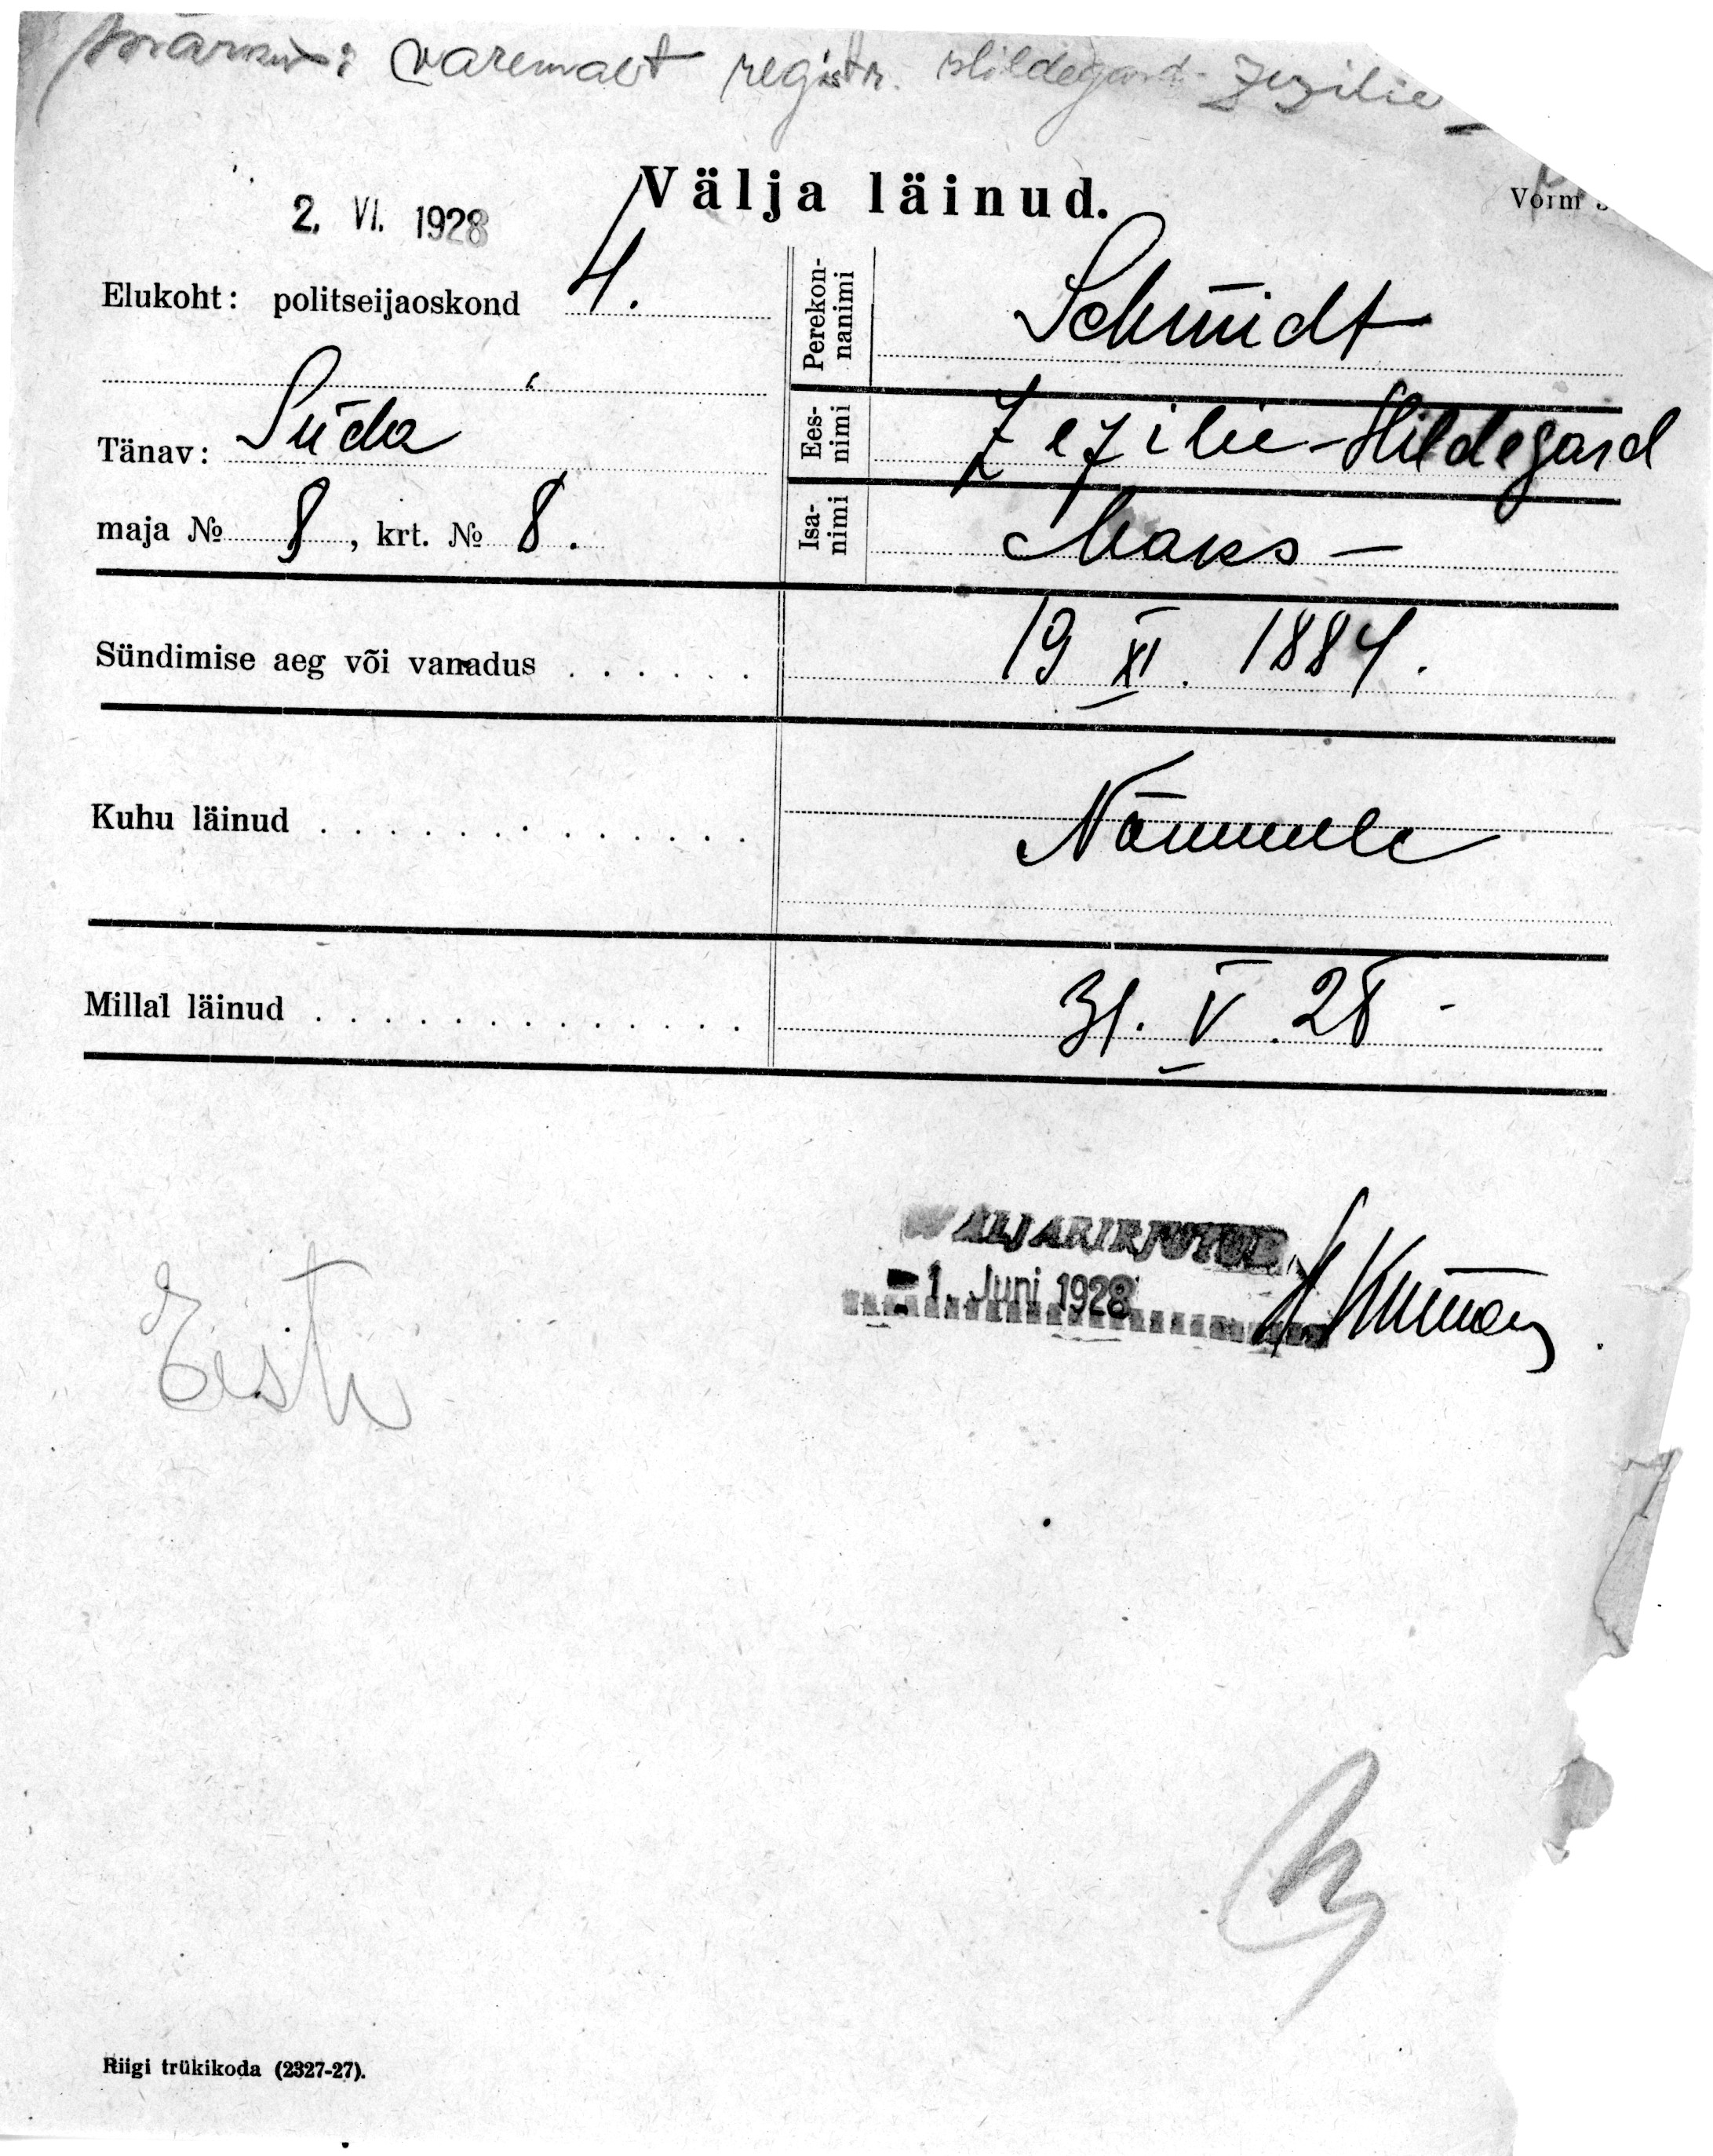 Märkus: varemalt registr. Hildegard-Zezilie
Välja läinud.
Vorm
2. VI. 1928
Elukoht: politseijaoskond 4.
Perekonnanimi Schmidt
Tänav: Süda
Eesnimi Zezilie-Hildegard
maja № 8, krt. № 8.
Isanimi Maks –
Sündimise aeg või vanadus . . . . . . 19 XI. 1884.
Kuhu läinud . . . . . . . . . . . . . Nõmmele
Millal läinud . . . . . . . . . . . . . 31. V. 28 -
WÄLJAKIRJUTUD
- 1. Juni 1928
Eesti
Riigi trükikoda (2327-27).